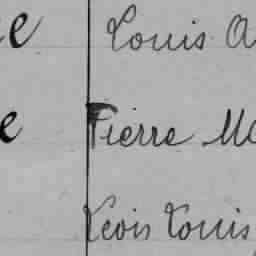 e Louis A
e Pierre Ma
Louis